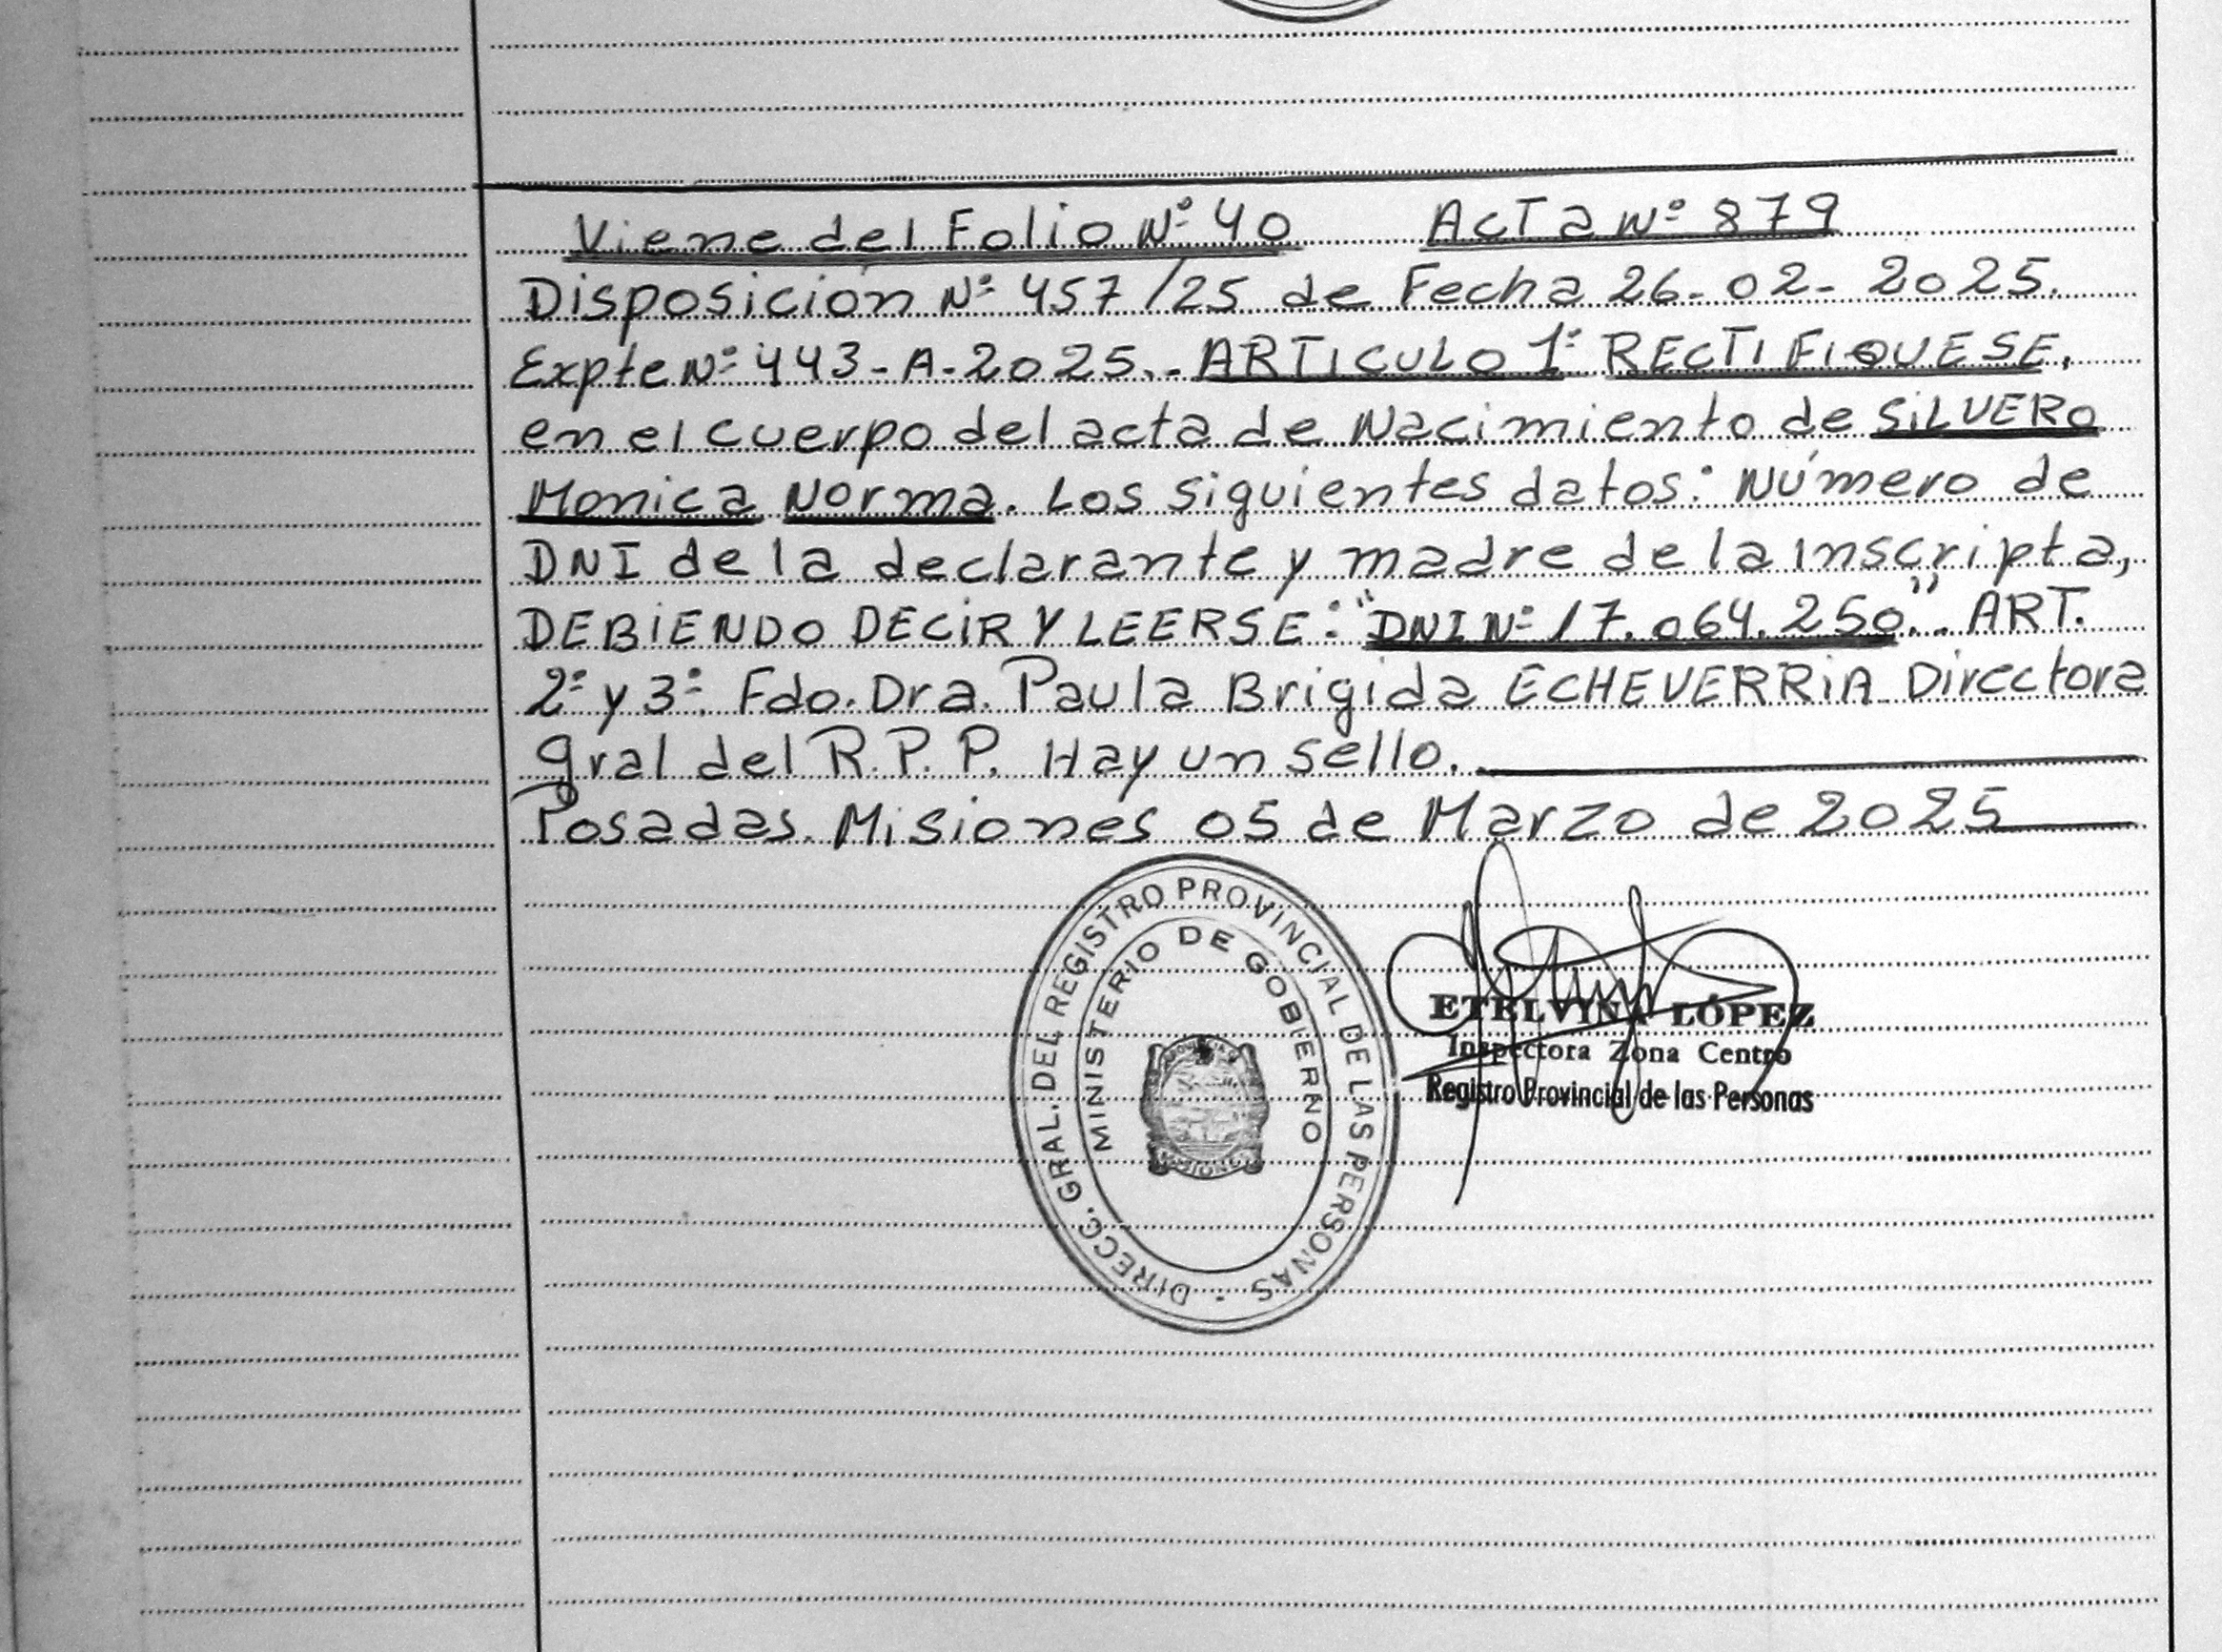 Viene del Folio Nº 40 Acta Nº 879
Disposición Nº 457/25 de Fecha 26-02-2025.
Expte Nº 443-A-2025.- ARTICULO 1º RECTIFIQUESE,
en el cuerpo del acta de Nacimiento de SILVERO
Monica Norma. Los siguientes datos: Número de
DNI de la declarante y madre de la inscripta,
DEBIENDO DECIR Y LEERSE: "DNI Nº 17.064.250". ART.
2º y 3º. Fdo. Dra. Paula Brigida ECHEVERRIA Directora
gral del R.P.P. Hay un sello.
Posadas. Misiones 05 de Marzo de 2025
DIRECC. GRAL. DEL REGISTRO PROVINCIAL DE LAS PERSONAS
MINISTERIO DE GOBIERNO
MISIONES
ETELVINA LÓPEZ
Inspectora Zona Centro
Registro Provincial de las Personas